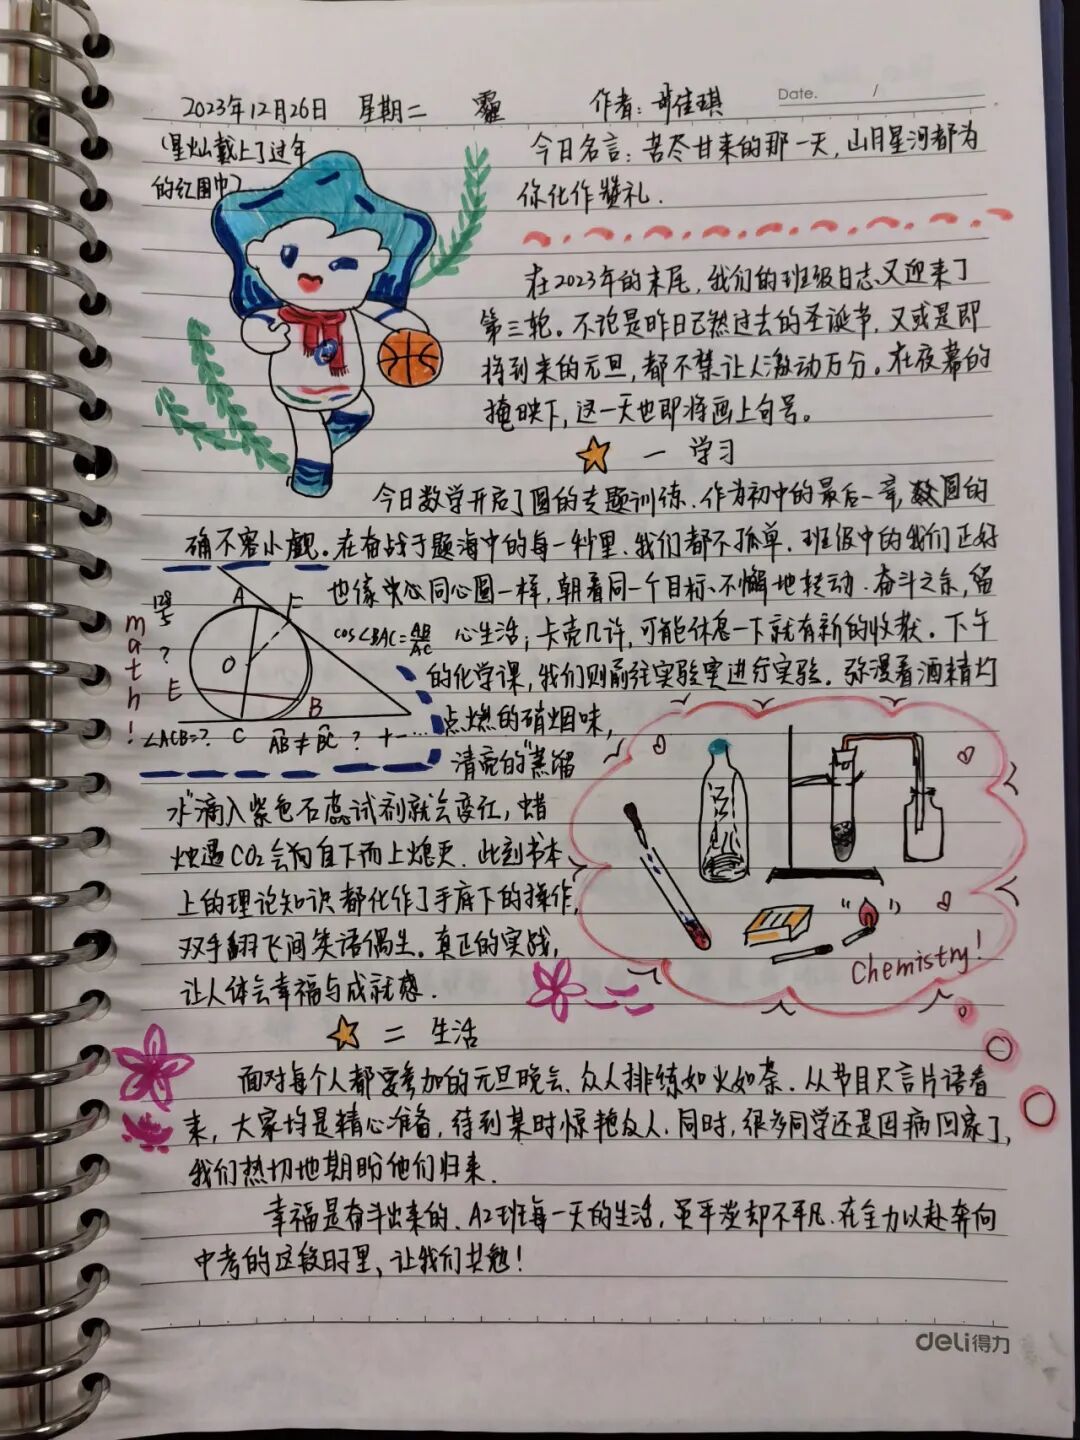 2023年12月26日 星期二 霾 作者:佳琪
Date. /
(星灿戴上了过年
的红围巾)
今日名言：苦尽甘来的那一天，山月星河都为
你化作贺礼.
在2023年的末尾，我们的班级日志又迎来了
第三轮。不论是昨日已然过去的圣诞节，又或是即
将到来的元旦，都不禁让人激动万分。在夜幕的
掩映下，这一天也即将画上句号。
一 学习
今日数学开启了圆的专题训练.作为初中的最后一章，圆的
确不容小觑。在奋战于题海中的每一秒里、我们都不孤单.班级中的我们正好
也像同心圆一样，朝着同一个目标、不懈地转动.奋斗之余，留
心生活；卡壳几许，可能休息一下就有新的收获。下午
的化学课，我们则前往实验室进行实验.弥漫着酒精灯
点燃的硝烟味，
清亮的"蒸馏
水"滴入紫色石蕊试剂就会变红，蜡
烛遇CO2会向自下而上熄灭.此刻书本
上的理论知识都化作了手底下的操作，
双手翻飞间笑语偶生.真正的实践，
让人体会幸福与成就感.
math!
128
5
?
A
F
O
E
B
C
cos∠BAC=AB/AC
∠ACB=? AB≠BC ? +-...
Chemistry!
二 生活
面对每个人都要参加的元旦晚会、众人排练如火如荼.从节目只言片语看
来，大家均是精心准备，待到某时惊艳众人.同时，很多同学还是因病回家了，
我们热切地期盼他们归来.
幸福是奋斗出来的.A2班每一天的生活，虽平淡却不平凡.在全力以赴奔向
中考的这段时里、让我们共勉！
deli得力